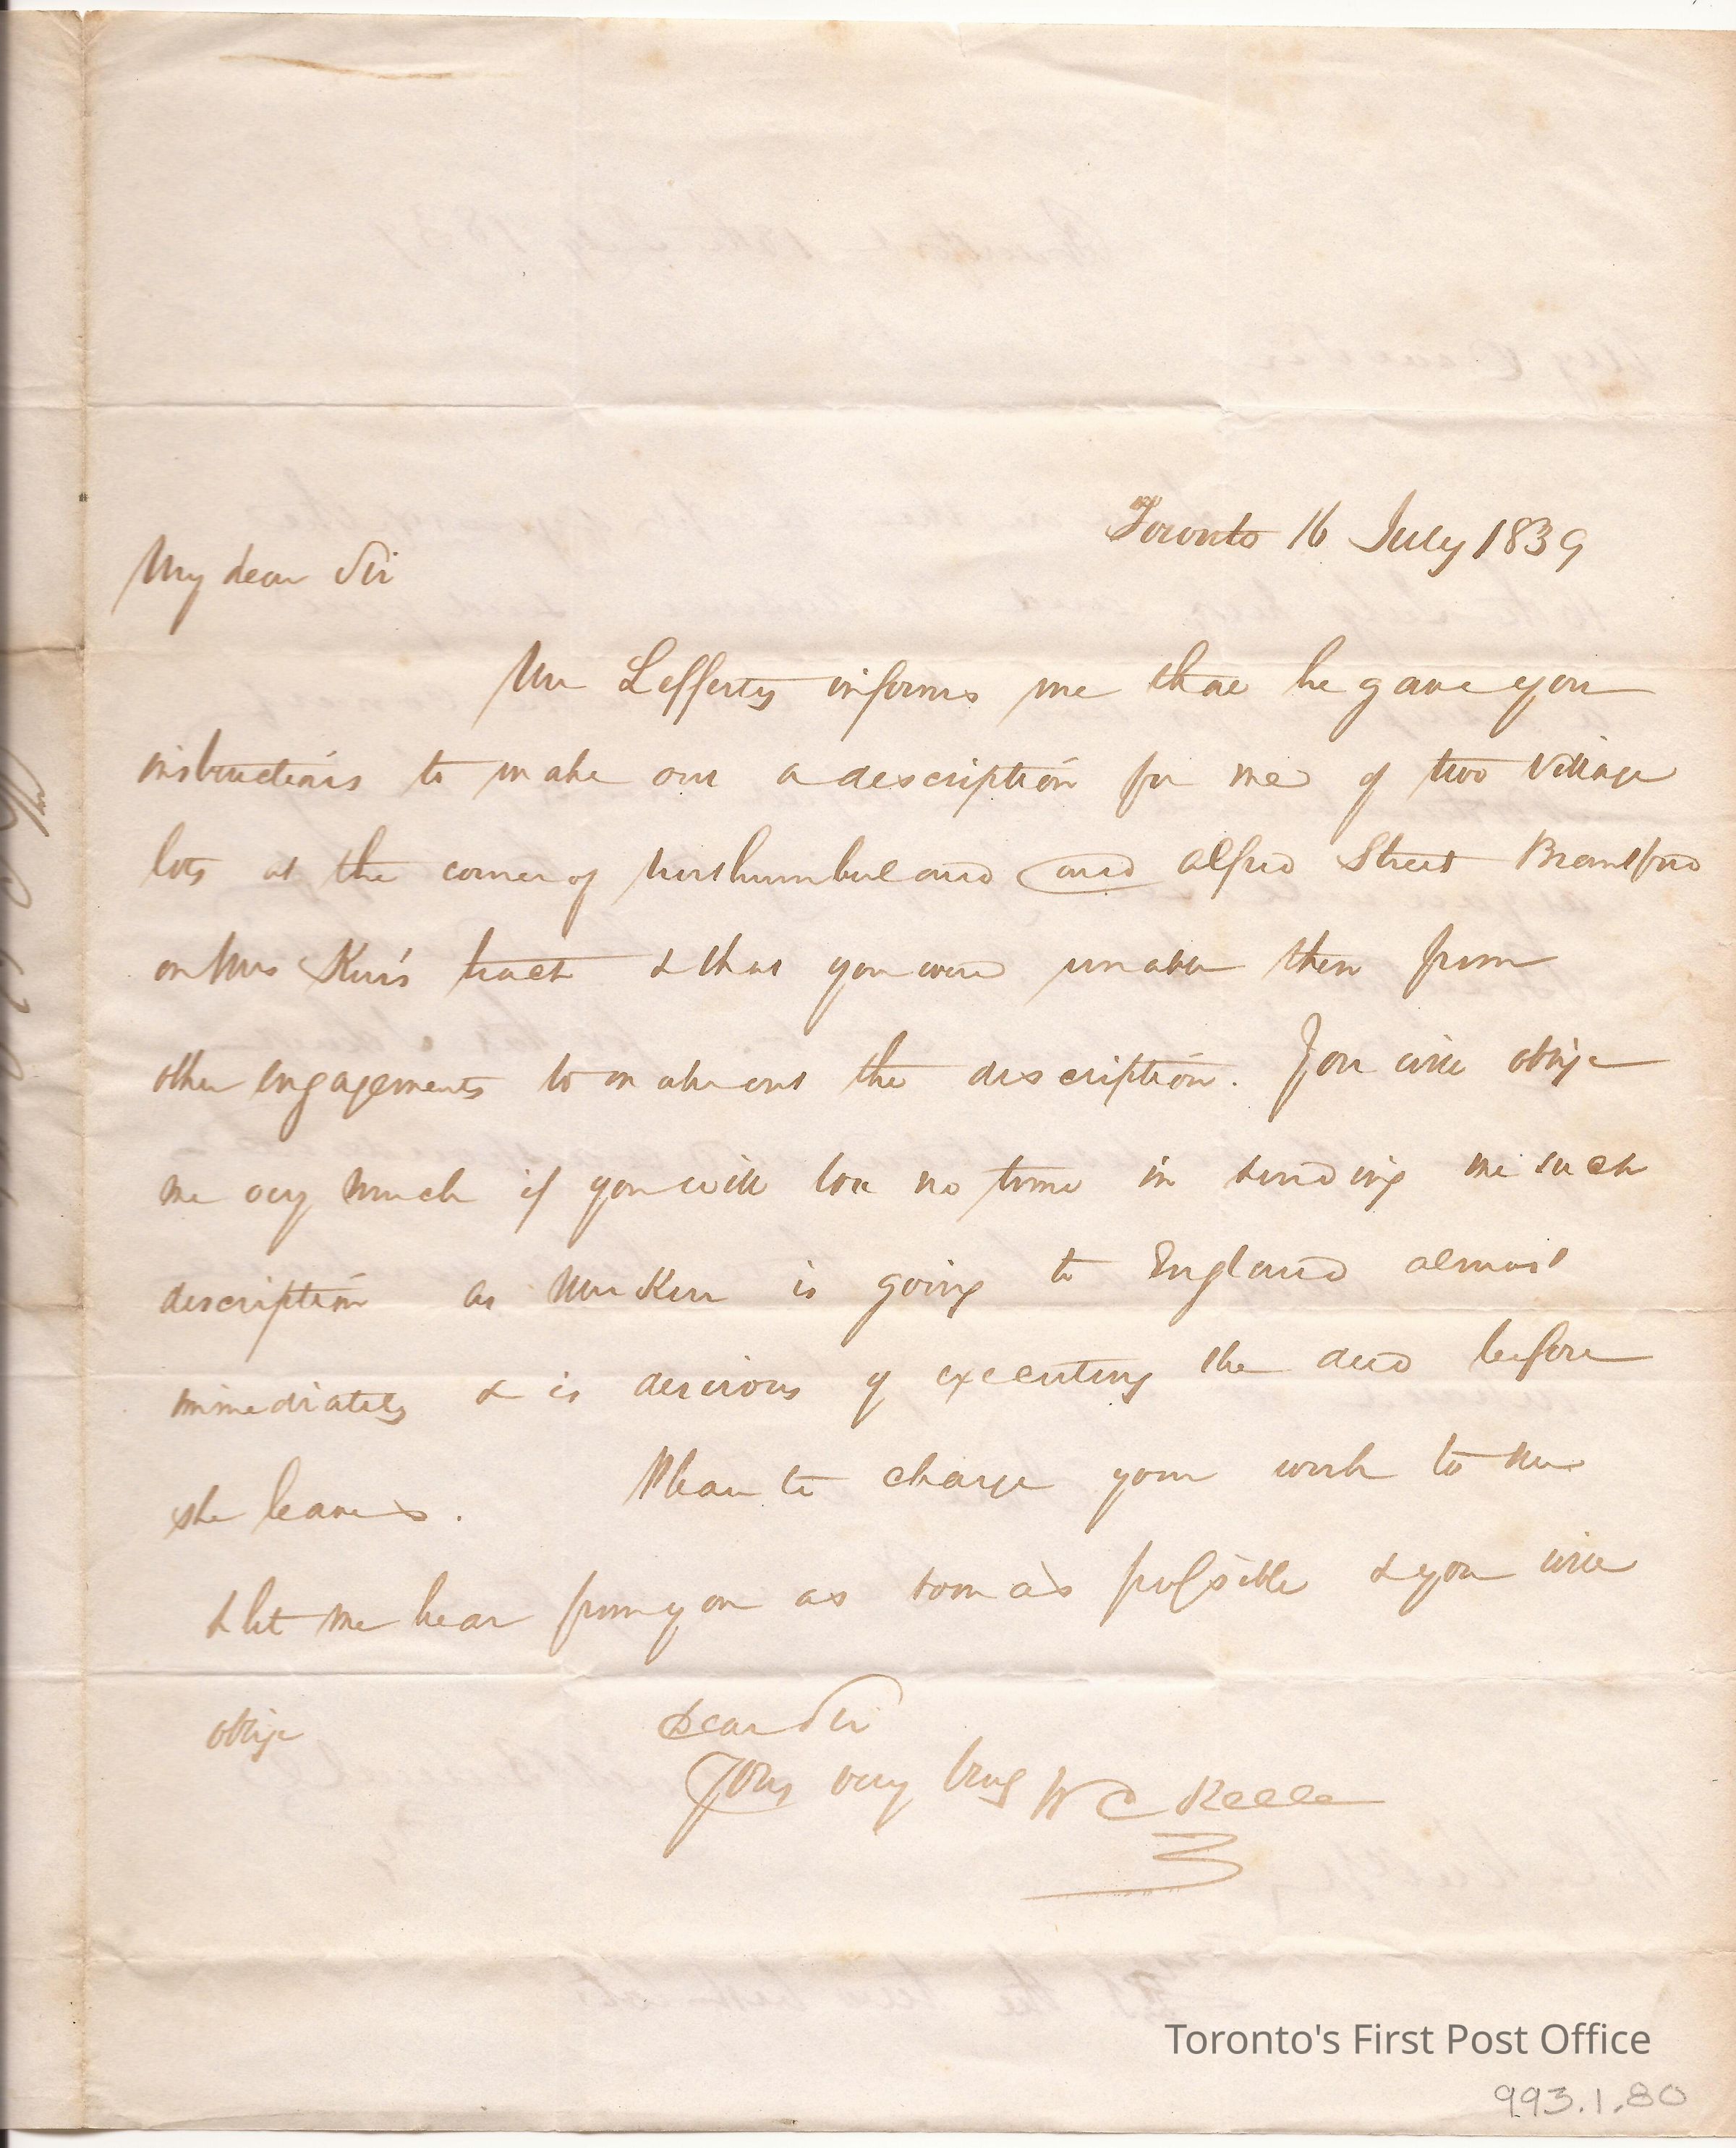 Toronto 16 July 1839
My dear Sir
Mr Lefferty informs me that he gave you
instructions to make out a description for me of two Village
lots at the corner of Northumberland and Alfred Street Brantford
on Mrs Kerr's tract & that you were unable then from
other engagements to make out the description. You will oblige
me very much if you will lose no time in sending me such
description as Mrs Kerr is going to England almost
immediately & is desirous of executing the deed before
she leaves. Please to charge your work to me
& let me hear from you as soon as possible & you will
oblige Dear Sir
Yours very truly W C Keele
Toronto's First Post Office
993.1.80